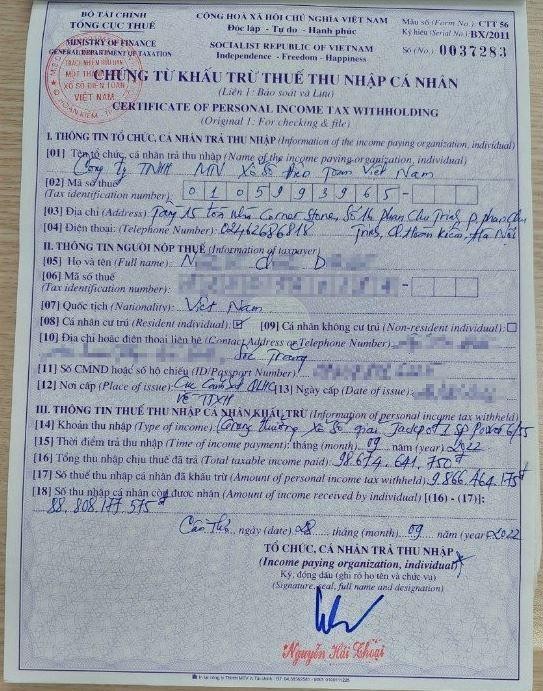 BỘ TÀI CHÍNH
TỔNG CỤC THUẾ
MINISTRY OF FINANCE
GENERAL DEPARTMENT OF TAXATION
CỘNG HOÀ XÃ HỘI CHỦ NGHĨA VIỆT NAM
Độc lập - Tự do - Hạnh phúc
SOCIALIST REPUBLIC OF VIETNAM
Independence - Freedom - Happiness
Mẫu số (Form No.) CTT 56
Ký hiệu (Serial No.) BX/2011
Số (No.) 0037283
TRÁCH NHIỆM HỮU HẠN
MỘT THÀNH VIÊN
XỔ SỐ ĐIỆN TOÁN
VIỆT NAM
CHỨNG TỪ KHẤU TRỪ THUẾ THU NHẬP CÁ NHÂN
(Liên 1: Báo soát và Lưu)
CERTIFICATE OF PERSONAL INCOME TAX WITHHOLDING
(Original 1: For checking & file)
I. THÔNG TIN TỔ CHỨC, CÁ NHÂN TRẢ THU NHẬP (Information of the income paying organization, individual)
[01] Tên tổ chức, cá nhân trả thu nhập (Name of the income paying organization, individual)
Công ty TNHH MTV Xổ Số Điện Toán Việt Nam
[02] Mã số thuế
(Tax identification number) 0 1 0 5 9 9 3 9 6 5 -
[03] Địa chỉ (Address) Tầng 15 tòa nhà Corner Stone, Số 16 Phan Chu Trinh, P. Phan Chu
[04] Điện thoại: (Telephone Number): 02462686818 Trinh, Q. Hoàn Kiếm, Hà Nội
II. THÔNG TIN NGƯỜI NỘP THUẾ (Information of taxpayer)
[05] Họ và tên (Full name): N
[06] Mã số thuế
(Tax identification number):
[07] Quốc tịch (Nationality): Việt Nam
[08] Cá nhân cư trú (Resident individual): ☑ [09] Cá nhân không cư trú (Non-resident individual): ☐
[10] Địa chỉ hoặc điện thoại liên hệ (Contact Address or Telephone Number):
Sóc Trăng
[11] Số CMND hoặc số hộ chiếu (ID/Passport Number)
[12] Nơi cấp (Place of issue): Cục Cảnh sát QLHC [13] Ngày cấp (Date of issue):
về TTXH
III. THÔNG TIN THUẾ THU NHẬP CÁ NHÂN KHẤU TRỪ (Information of personal income tax withheld)
[14] Khoản thu nhập (Type of income): Trúng thưởng Xổ Số giải Jackpot 1 SP Power 6/55
[15] Thời điểm trả thu nhập (Time of income payment): tháng (month) 09 năm (year) 2022
[16] Tổng thu nhập chịu thuế đã trả (Total taxable income paid): 98.674.641.750đ
[17] Số thuế thu nhập cá nhân đã khấu trừ (Amount of personal income tax withheld) 9.866.464.175đ
[18] Số thu nhập cá nhân còn được nhận (Amount of income received by individual) [(16) - (17)]:
88.808.177.575đ
Cần Thơ, ngày (date) 28 tháng (month) 09 năm (year) 2022
TỔ CHỨC, CÁ NHÂN TRẢ THU NHẬP
(Income paying organization, individual)
Ký, đóng dấu (ghi rõ họ tên và chức vụ)
(Signature, seal, full name and designation)
Nguyễn Hải Thoại